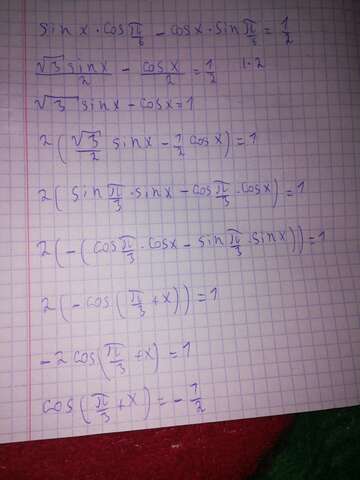 sin x · cos π/6 − cos x · sin π/6 = 1/2
√3 sin x/2 − cos x/2 = 1/2 | · 2
√3 sin x − cos x = 1
2(√3/2 sin x − 1/2 cos x) = 1
2(sin π/3 · sin x − cos π/3 · cos x) = 1
2(−(cos π/3 · cos x − sin π/3 · sin x)) = 1
2(−cos(π/3 + x)) = 1
−2 cos(π/3 + x) = 1
cos(π/3 + x) = −1/2